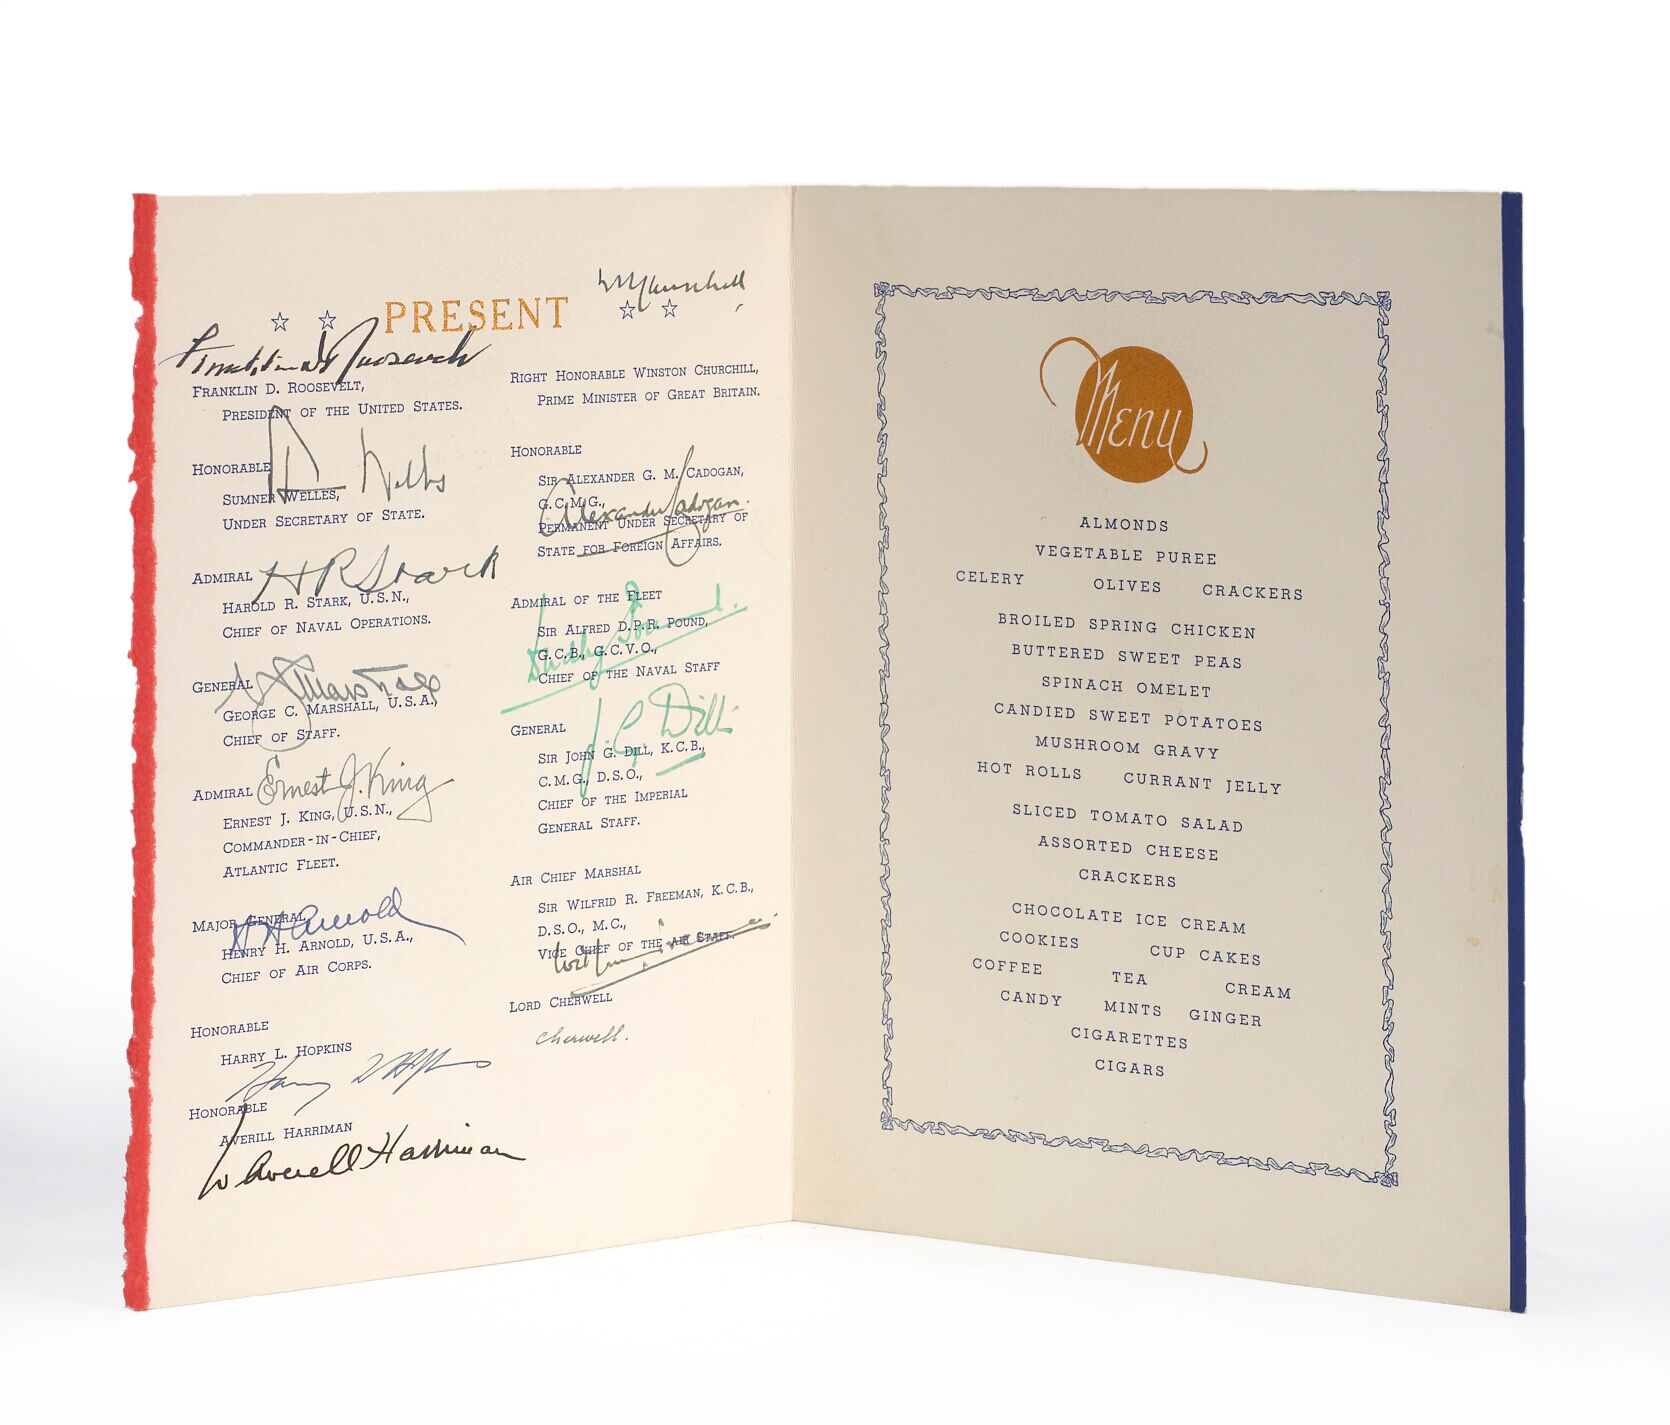 PRESENT
Franklin D Roosevelt
FRANKLIN D. ROOSEVELT,
PRESIDENT OF THE UNITED STATES.
HONORABLE
Sumner Welles
SUMNER WELLES,
UNDER SECRETARY OF STATE.
ADMIRAL
H R Stark
HAROLD R. STARK, U.S.N.,
CHIEF OF NAVAL OPERATIONS.
GENERAL
G C Marshall
GEORGE C. MARSHALL, U.S.A.,
CHIEF OF STAFF.
ADMIRAL
Ernest J. King
ERNEST J. KING, U.S.N.,
COMMANDER-IN-CHIEF,
ATLANTIC FLEET.
MAJOR GENERAL
H H Arnold
HENRY H. ARNOLD, U.S.A.,
CHIEF OF AIR CORPS.
HONORABLE
HARRY L. HOPKINS
Harry L Hopkins
HONORABLE
AVERILL HARRIMAN
W Averell Harriman
W Churchill
RIGHT HONORABLE WINSTON CHURCHILL,
PRIME MINISTER OF GREAT BRITAIN.
HONORABLE
SIR ALEXANDER G. M. CADOGAN,
G.C.M.G.,
Alexander Cadogan.
PERMANENT UNDER SECRETARY OF
STATE FOR FOREIGN AFFAIRS.
ADMIRAL OF THE FLEET
SIR ALFRED D.P.R. POUND,
G.C.B., G.C.V.O.,
Dudley Pound.
CHIEF OF THE NAVAL STAFF
GENERAL
J. G. Dill
SIR JOHN G. DILL, K.C.B.,
C.M.G., D.S.O.,
CHIEF OF THE IMPERIAL
GENERAL STAFF.
AIR CHIEF MARSHAL
SIR WILFRID R. FREEMAN, K.C.B.,
D.S.O., M.C.,
VICE CHIEF OF THE AIR STAFF.
LORD CHERWELL
Cherwell.
Menu
ALMONDS
VEGETABLE PUREE
CELERY OLIVES CRACKERS
BROILED SPRING CHICKEN
BUTTERED SWEET PEAS
SPINACH OMELET
CANDIED SWEET POTATOES
MUSHROOM GRAVY
HOT ROLLS CURRANT JELLY
SLICED TOMATO SALAD
ASSORTED CHEESE
CRACKERS
CHOCOLATE ICE CREAM
COOKIES CUP CAKES
COFFEE TEA CREAM
CANDY MINTS GINGER
CIGARETTES
CIGARS